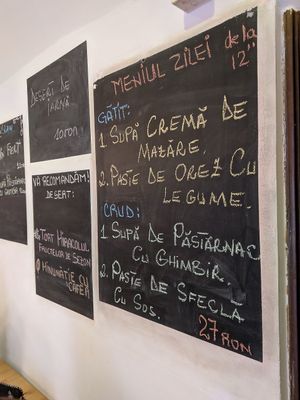 MENIUL ZILEI de la 12"
GĂTIT:
1. SUPĂ CREMĂ DE
MAZĂRE.
2. PASTE DE OREZ CU
LEGUME.
CRUD:
1. SUPĂ DE PĂSTÂRNAC
CU GHIMBIR.
2. PASTE DE SFECLĂ
CU SOS.
27 RON
DESERT DE
IARNĂ
10 RON
VĂ RECOMANDĂM!
DESERT:
TORT MIRACOLUL
FRUCTELOR DE SEZON
MINUNĂȚIE CU
CAFEA